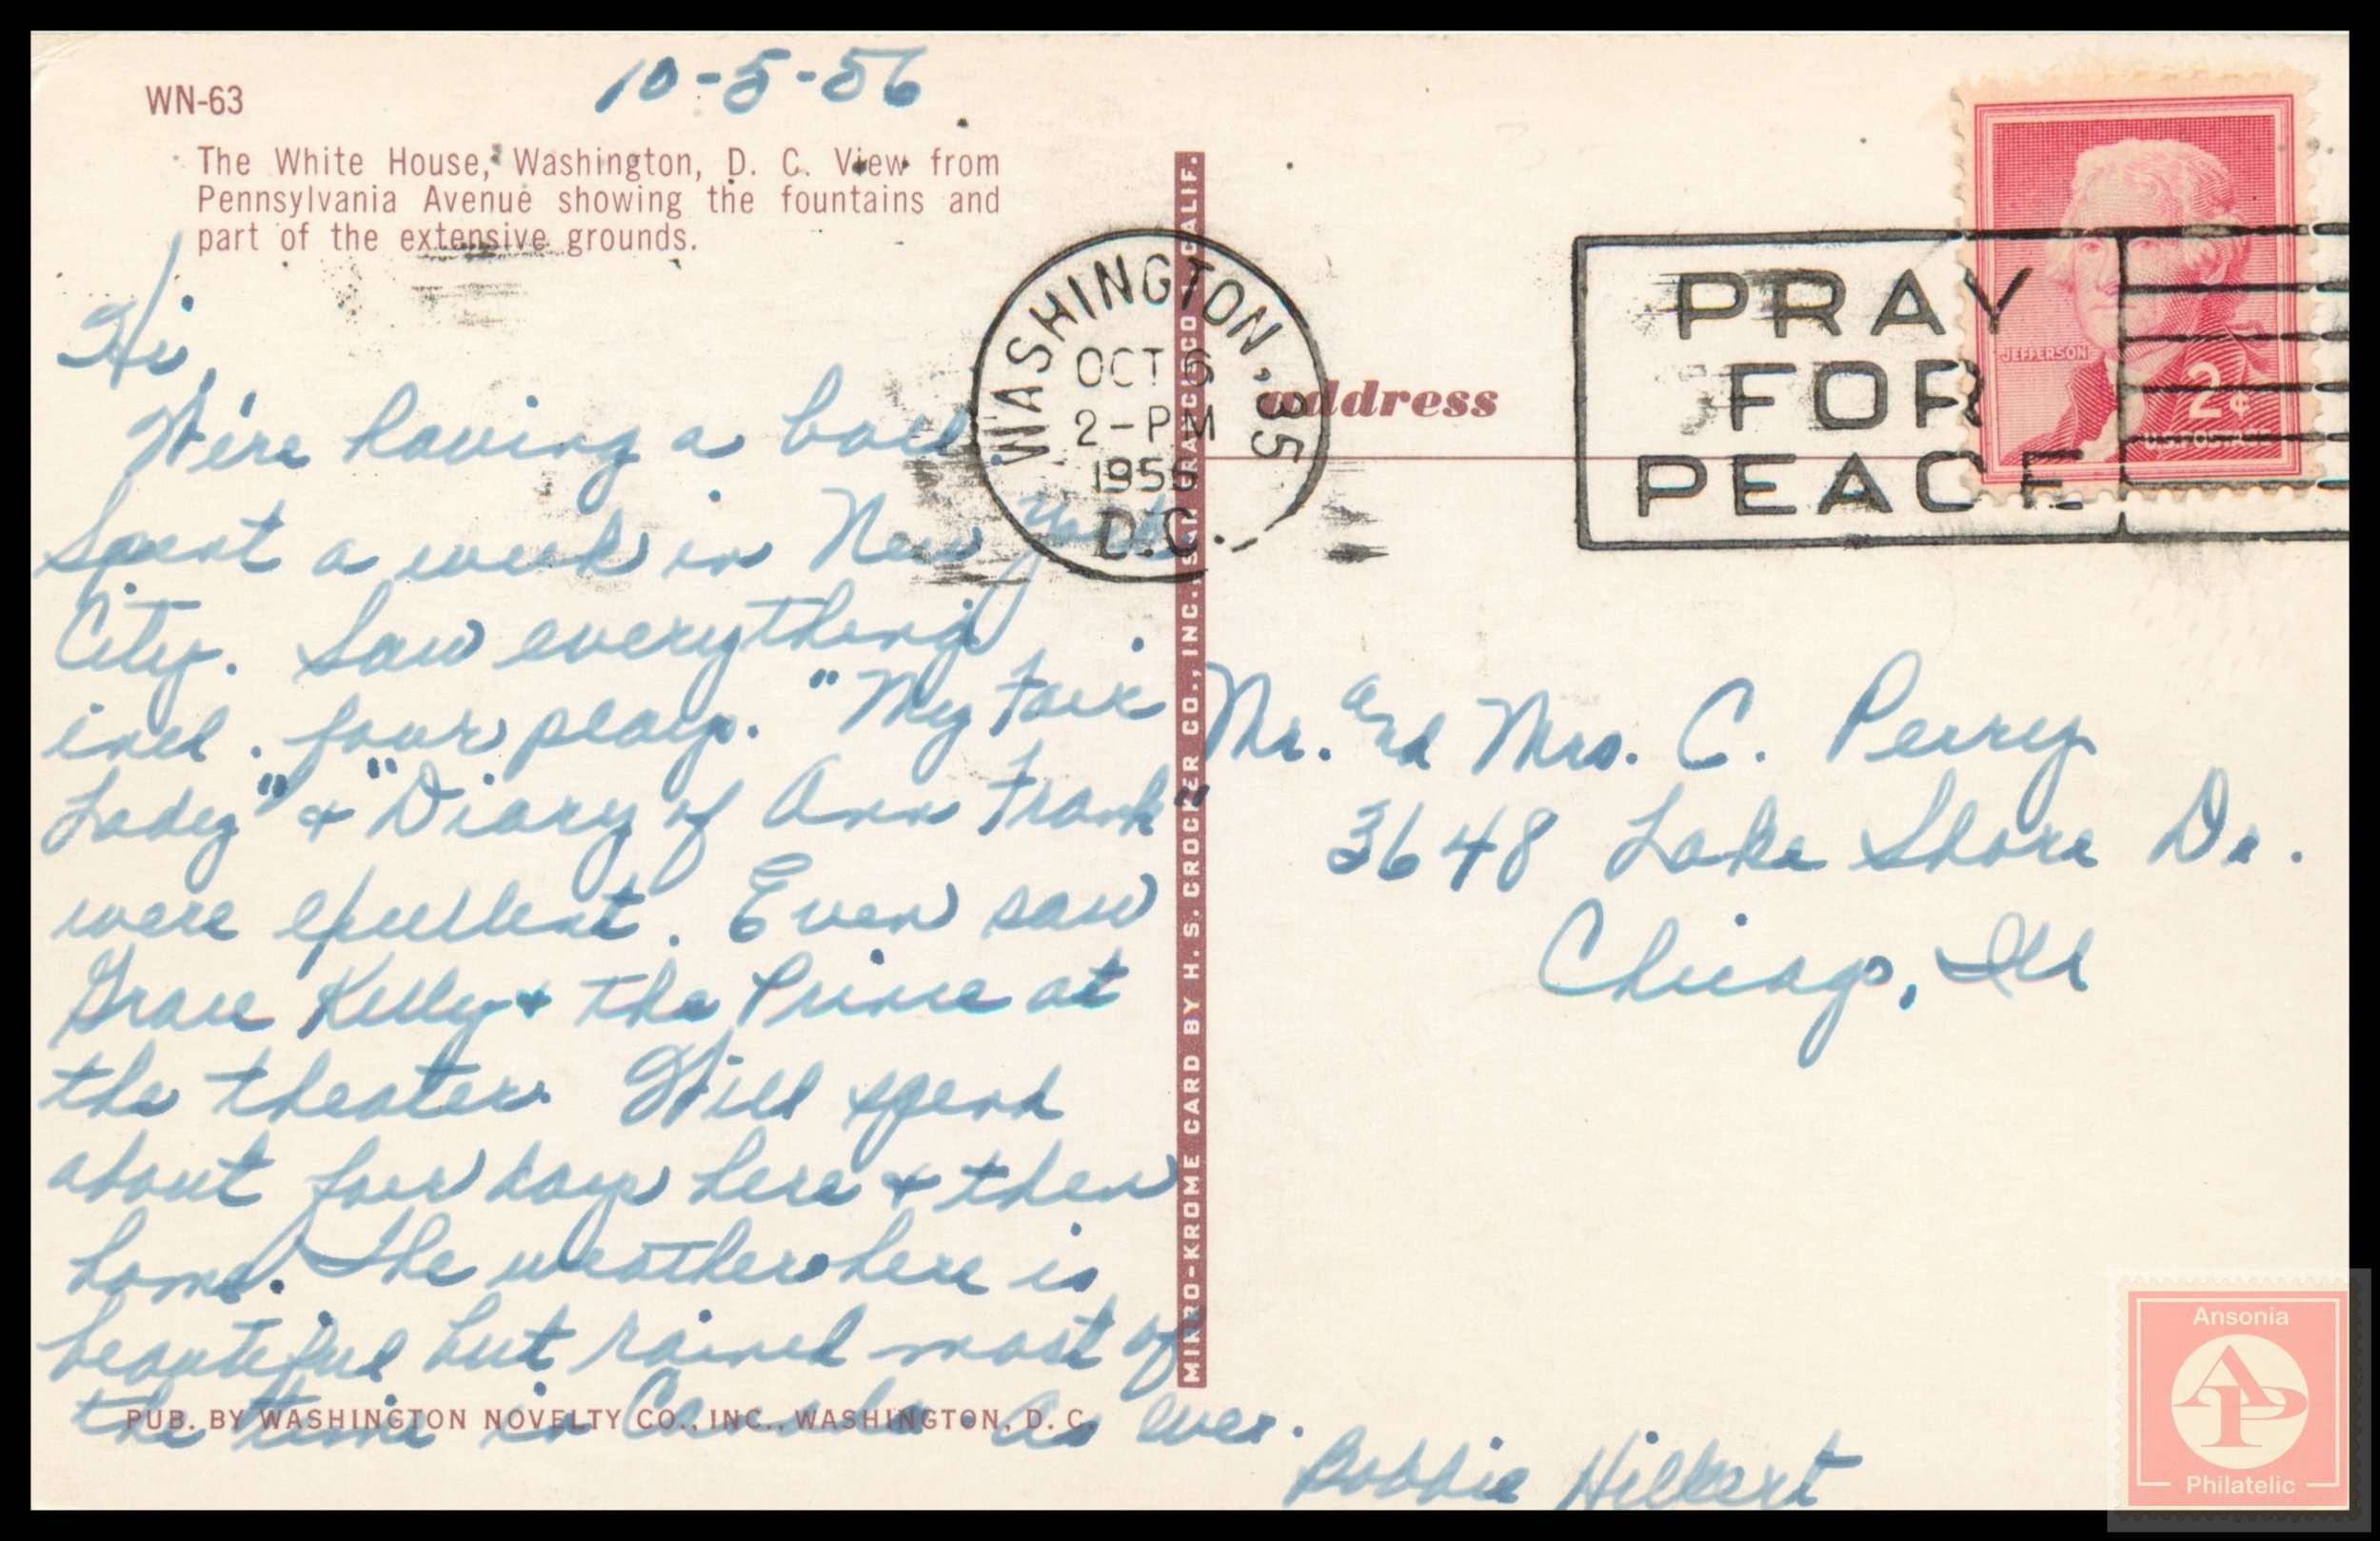 10-5-56
WN-63
The White House, Washington, D. C. View from
Pennsylvania Avenue showing the fountains and
part of the extensive grounds.
Hi,
We're having a ball.
Spent a week in New York
City. Saw everything
incl. four plays. "My Fair
Lady" & "Diary of Ann Frank"
were excellent. Even saw
Grace Kelly & the Prince at
the theater. Will spend
about four days here & then
home. The weather here is
beautiful but rained most of
the time in Canada. As ever.
Bobbie Hilbert
PUB. BY WASHINGTON NOVELTY CO., INC., WASHINGTON, D. C.
MIKRO-KROME CARD BY H. S. CROCKER CO., INC., SAN FRANCISCO CALIF.
WASHINGTON, 35
OCT 6
2-PM
1956
D.C.
address
PRAY
FOR
PEACE
JEFFERSON
2¢
U.S. POSTAGE
Mr. and Mrs. C. Perry
3648 Lake Shore Dr.
Chicago, Ill
Ansonia
AP
Philatelic